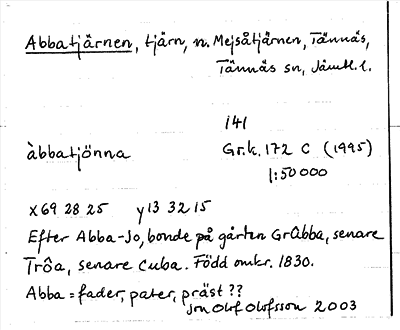 Abbatjärnen, tjärn, n. Mejsåtjärnen, Tännäs,
Tännäs sn, Jämtl. l.
141
àbbatjönna Gr.k. 172 C (1995)
1:50 000
x 69 28 25 y 13 32 15
Efter Abba-Jo, bonde på gården Grabba, senare
Trôa, senare Cuba. Född omkr. 1830.
Abba = fader, pater, präst ??
Jon Olof Olofsson 2003